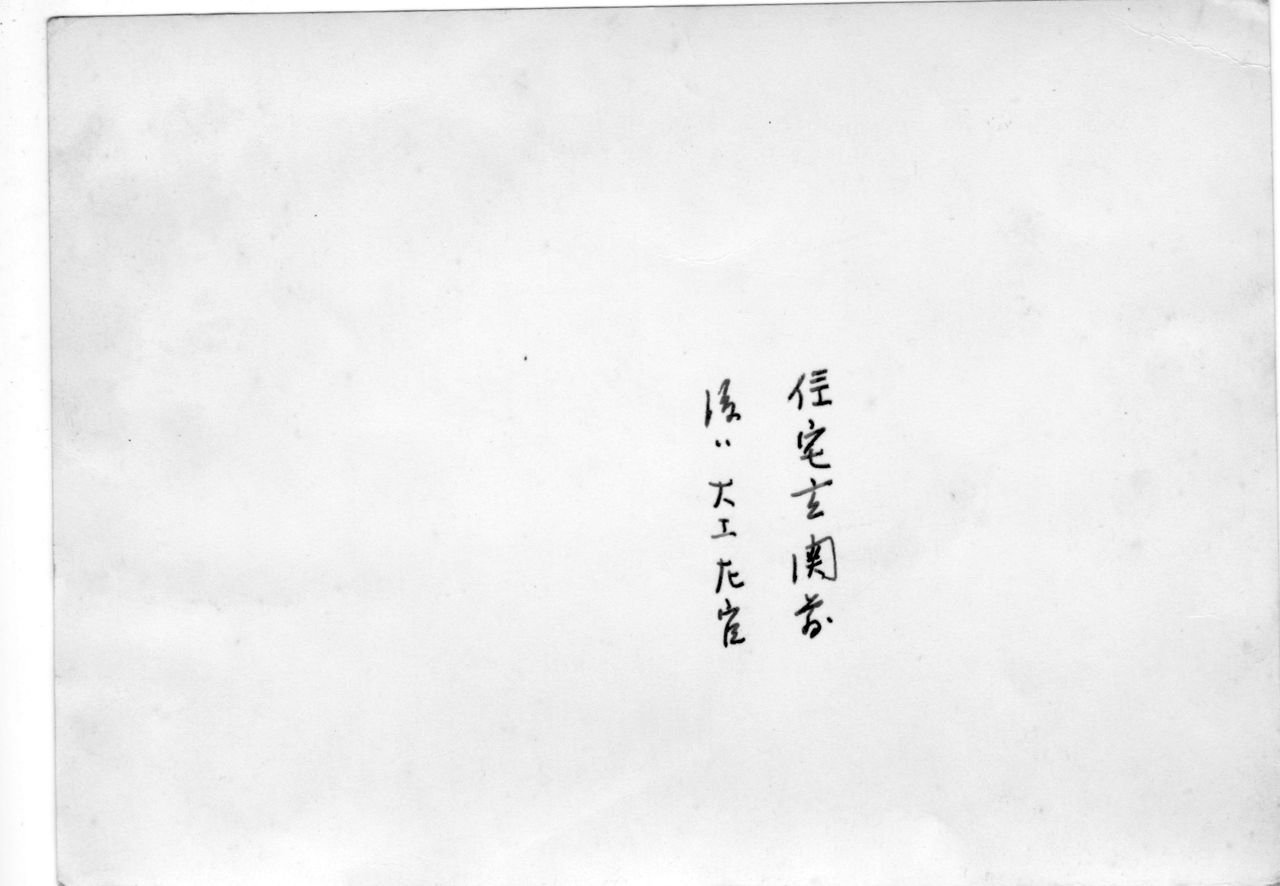 住宅玄関前
後ハ大工左官